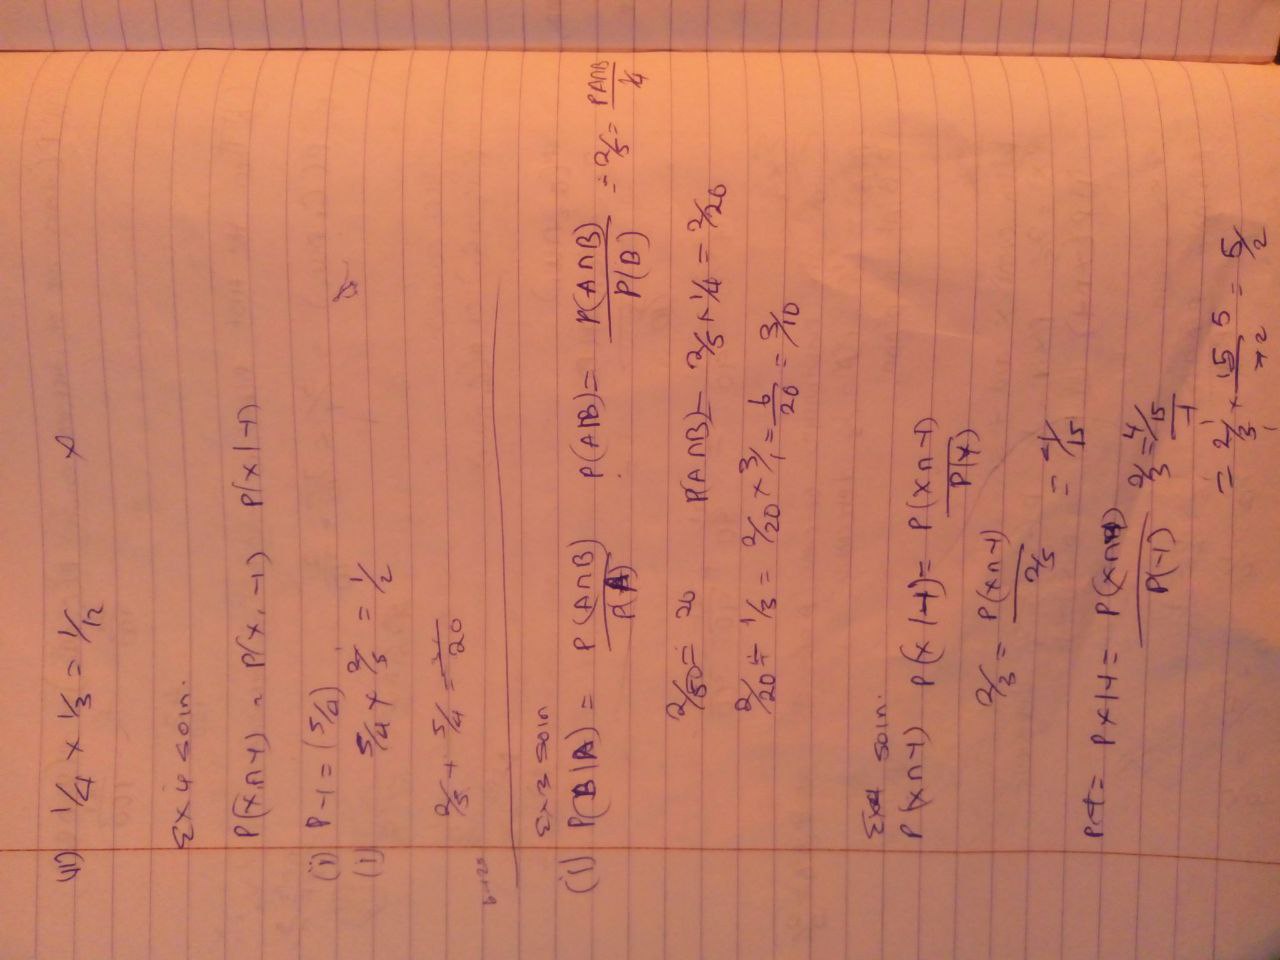 (vi) 1/4 × 1/3 = 1/12
Ex 4 soln.
P(X∩Y) = P(X, Y) P(X|Y)
(i) P Y = (5/4)
(i) 5/4 × 2/5 = 1/2
2/5 + 5/4 = /20
Ex 3 soln
(i) P(B|A) = P(A∩B)/P(A) P(A|B) = P(A∩B)/P(B) = 2/5 = PA∩B/1/4
2/50 = 20 P(A∩B) = 2/5 × 1/4 = 2/20
2/20 ÷ 1/3 = 2/20 × 3/1 = 6/20 = 3/10
Ex 4 soln.
P(X∩Y) P(X|Y) = P(X∩Y)/P(Y)
2/3 = P(X∩Y)/2/5
= 4/15
P Y = P X|Y = P(X∩Y)/P(Y) 2/3 = 4/15/Y
= 2/3 × 15 5/2 = 5/2